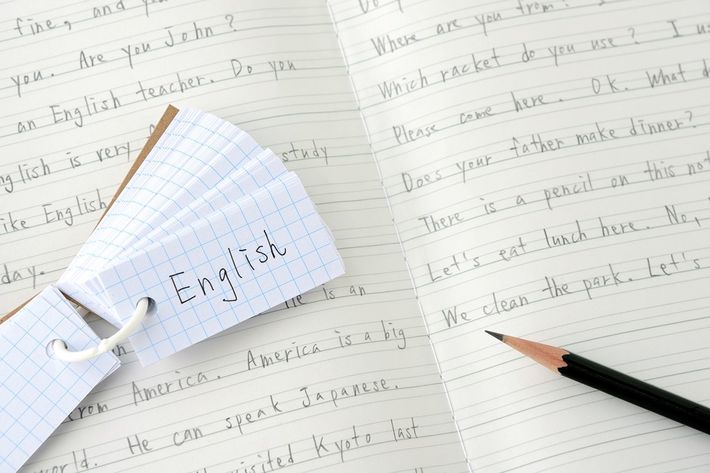 fine, and you
you. Are you John?
an English teacher. Do you
English is very study
like English,
day.
English
He is an
from America. America is a big
world. He can speak Japanese.
visited Kyoto last
Do
Where are you from? I
Which racket do you use? I us
Please come here. OK. What d
Does your father make dinner?
There is a pencil on this not
Let's eat lunch here. No,
We clean the park. Let's